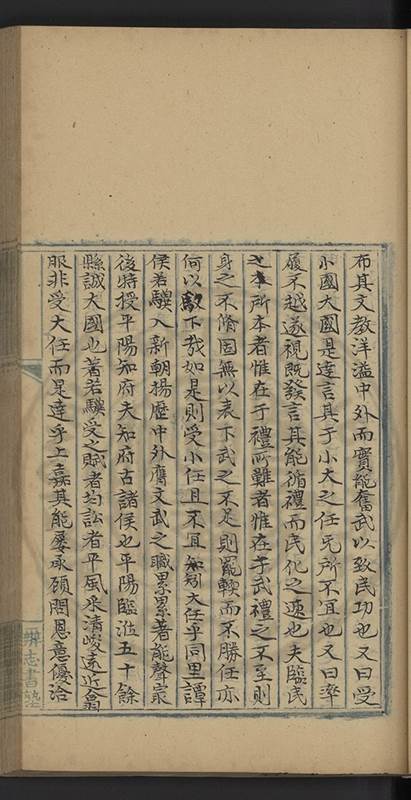 布其文教洋溢中外而實能奮武以致民功也又曰受
小國大國是達言其于小大之任无所不宜也又曰率
履不越遂視既發言其能循禮而民化之速也夫臨民
之本所本者惟在于禮所難者惟在于武禮之不至則
身之不脩固無以表下武之不足則罷輭而不勝任亦
何以馭下哉如是則受小任且不宜矧大任乎同里譚
侯若驥入新朝揚歷中外膺文武之職累累著能聲最
後特授平陽知府夫知府古諸侯也平陽臨涖五十餘
縣誠大國也若驥受之賦者均訟者平風采清峻遠近翕
服非受大任而是達乎上嘉其能屢承顧問恩意優洽
辨志書塾